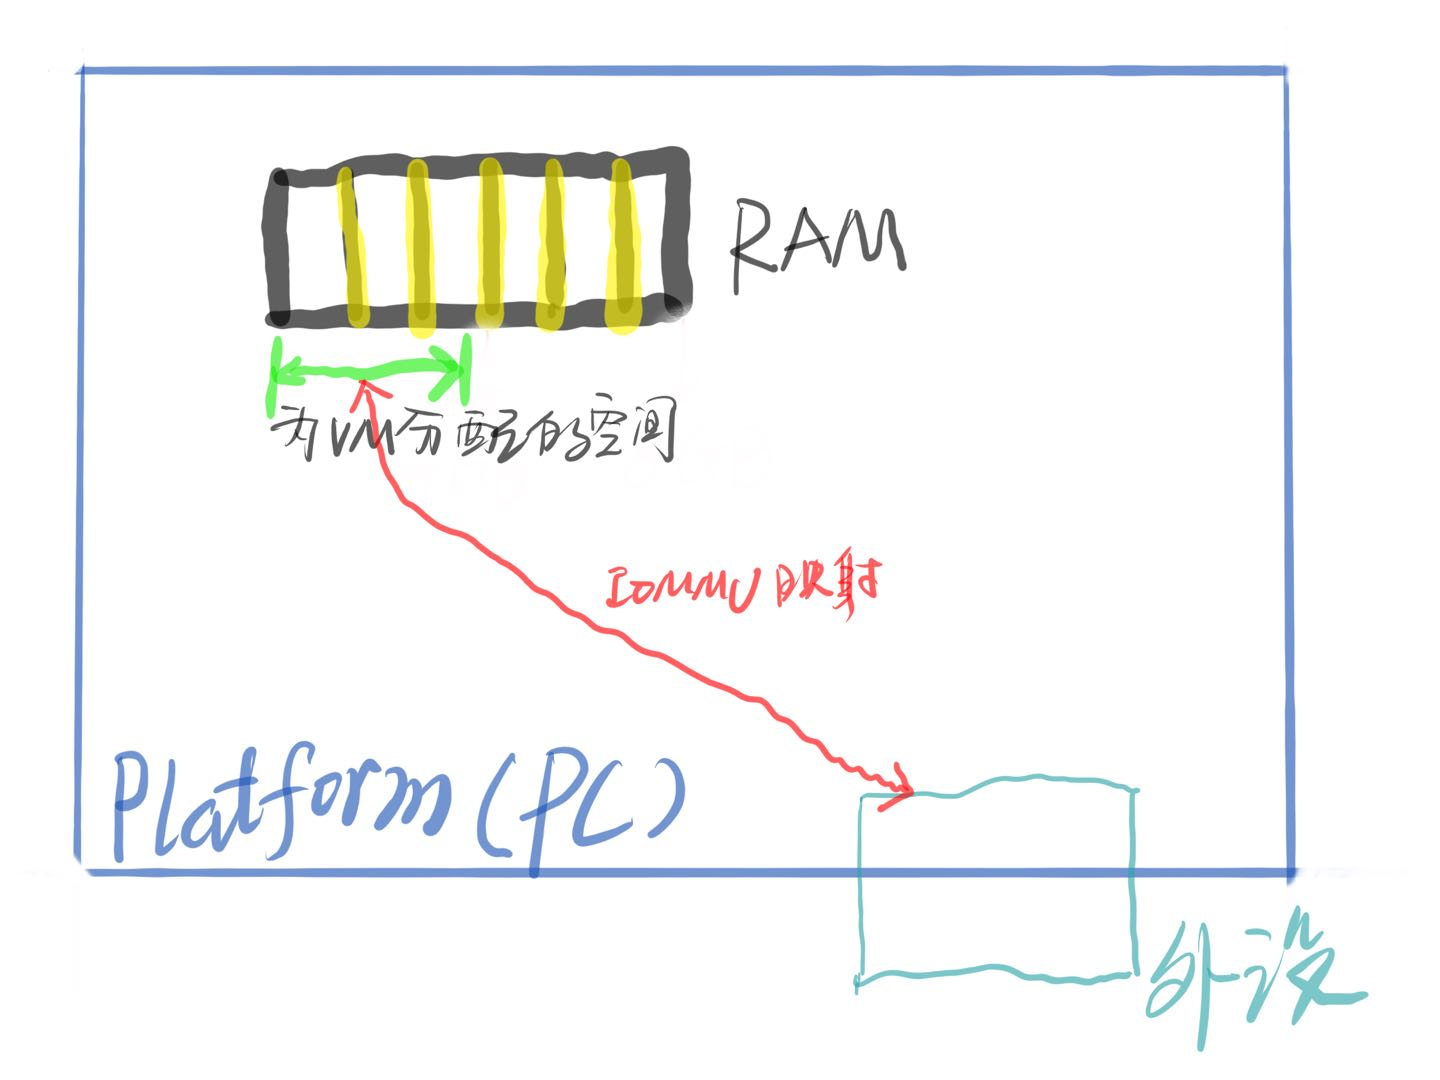 RAM
为VM分配的空间
IOMMU映射
Platform(PC)
外设